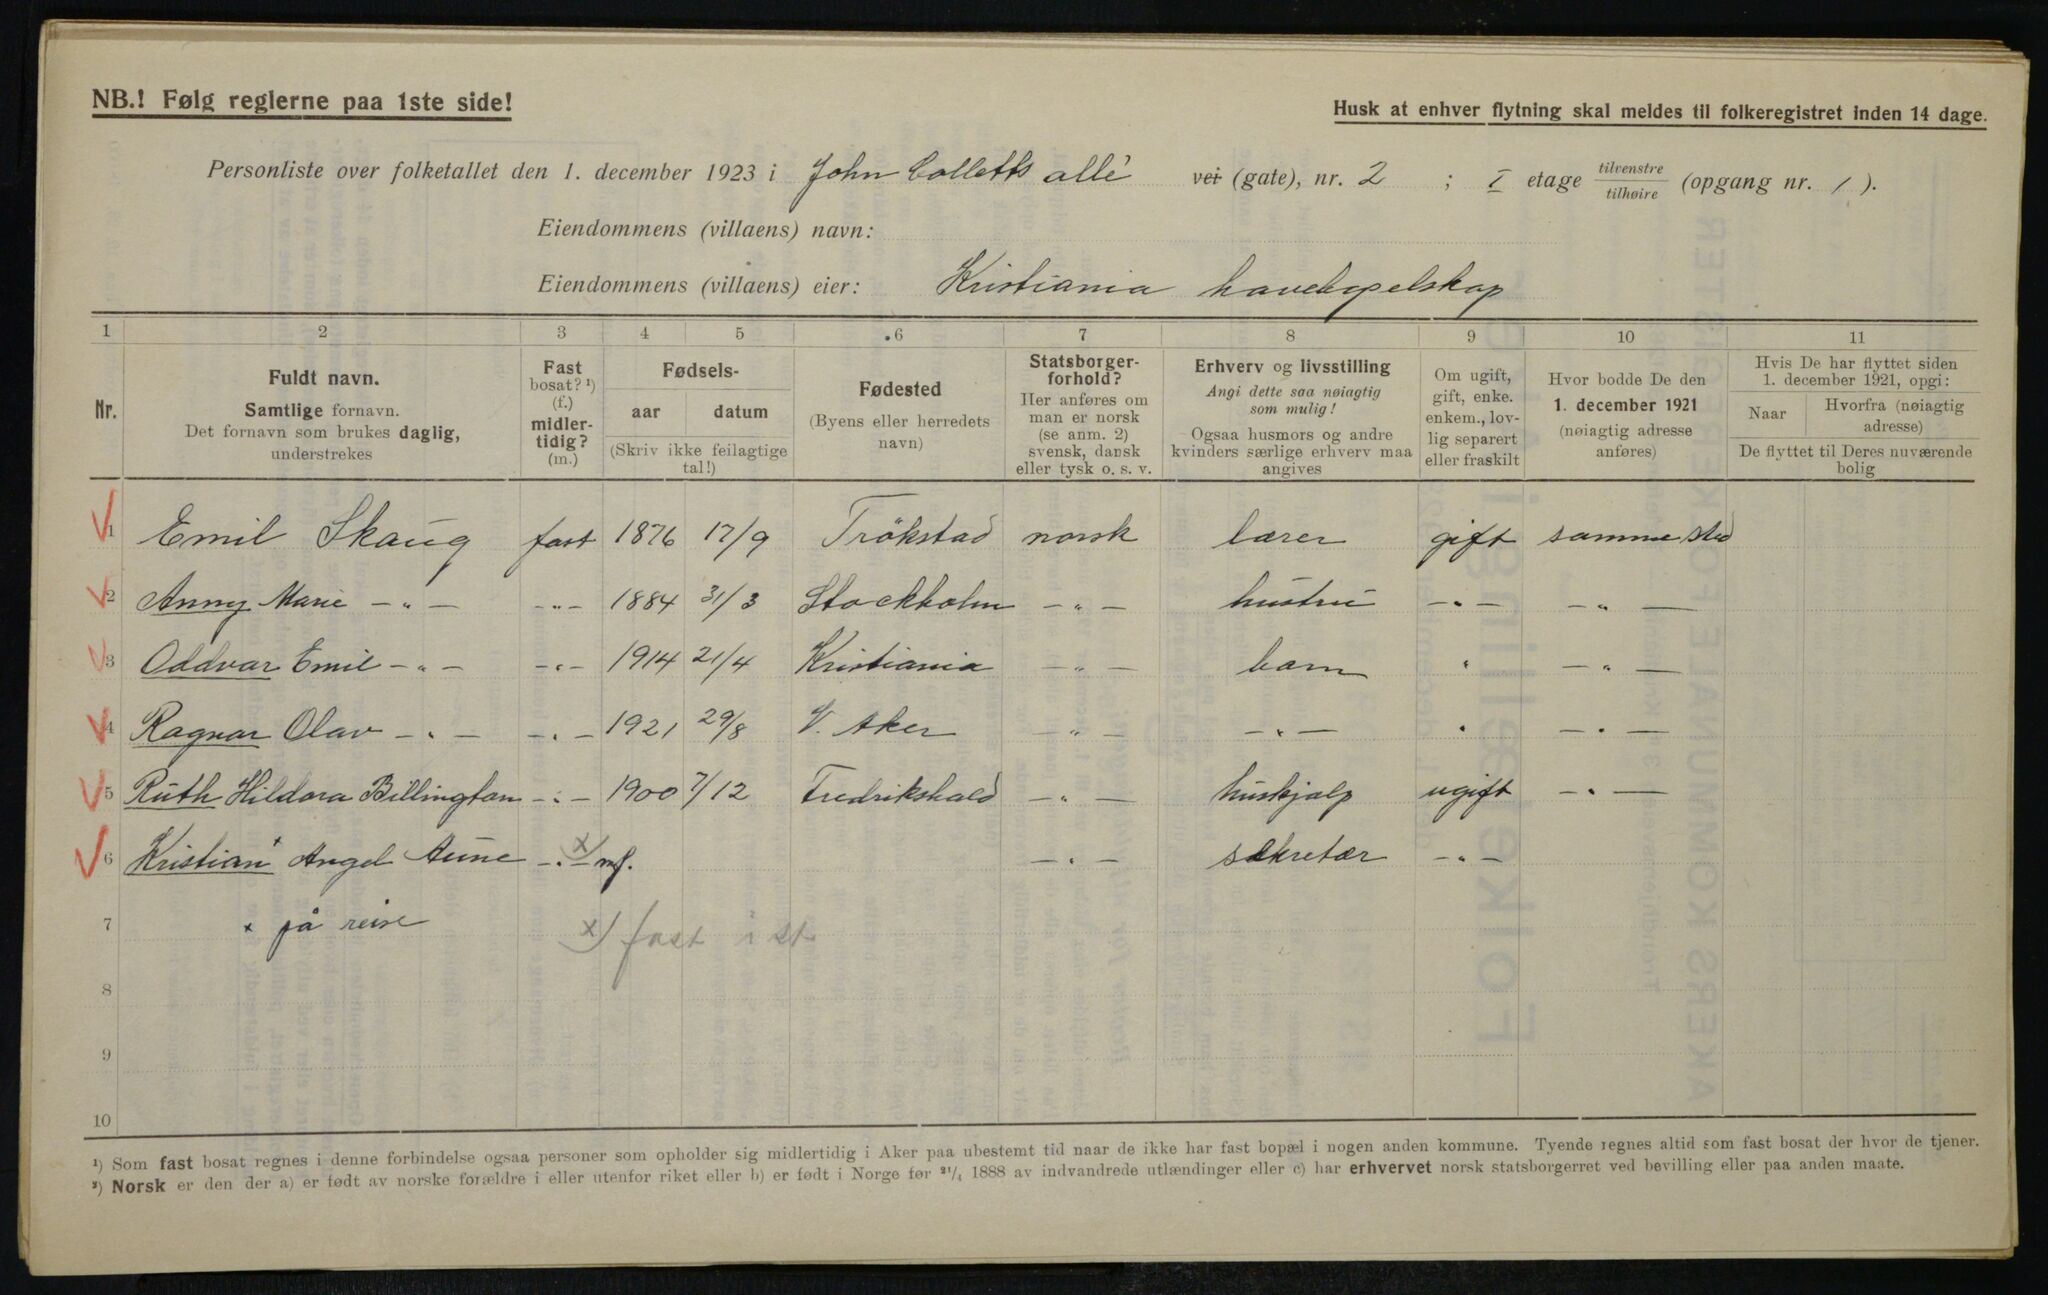 NB.! Følg reglerne paa 1ste side!
Husk at enhver flytning skal meldes til folkeregistret inden 14 dage.
Personliste over folketallet den 1. december 1923 i John Colletts allé vei (gate), nr. 2 ; I etage tilvenstre/tilhøire (opgang nr. 1 ).
Eiendommens (villaens) navn:
Eiendommens (villaens) eier: Kristiania haveboselskap
1 2 3 4 5 6 7 8 9 10 11
Nr.
Fuldt navn.
Samtlige fornavn.
Det fornavn som brukes daglig,
understrekes
Fast
bosat? ¹)
(f.)
midler-
tidig?
(m.)
Fødsels-
aar datum
(Skriv ikke feilagtige
tal!)
Fødested
(Byens eller herredets
navn)
Statsborger-
forhold?
Her anføres om
man er norsk
(se anm. 2)
svensk, dansk
eller tysk o. s. v.
Erhverv og livsstilling
Angi dette saa nøiagtig
som mulig!
Ogsaa husmors og andre
kvinders særlige erhverv maa
angives
Om ugift,
gift, enke.
enkem., lov-
lig separert
eller fraskilt
Hvor bodde De den
1. december 1921
(nøiagtig adresse
anføres)
Hvis De har flyttet siden
1. december 1921, opgi:
Naar
Hvorfra (nøiagtig
adresse)
De flyttet til Deres nuværende
bolig
1 Emil Skaug fast 1876 17/9 Trökstad norsk lærer gift samme sted
2 Anny Marie - " - - " - 1884 31/3 Stockholm - " - hustru - " - - " -
3 Oddvar Emil - " - - " - 1914 21/4 Kristiania - " - barn " - " -
4 Ragnar Olav - " - - " - 1921 29/8 V. Aker - " - - " - " - " -
5 Ruth Hildora Billington - " - 1900 7/12 Fredrikshald - " - huskjalp ugift - " -
6 Kristian x Angel Aune - " - x) mf. - " - sekretær - " -
7 x på reise x) fast i st
8
9
10
¹) Som fast bosat regnes i denne forbindelse ogsaa personer som opholder sig midlertidig i Aker paa ubestemt tid naar de ikke har fast bopæl i nogen anden kommune. Tyende regnes altid som fast bosat der hvor de tjener.
²) Norsk er den der a) er født av norske forældre i eller utenfor riket eller b) er født i Norge før 21/4 1888 av indvandrede utlændinger eller c) har erhvervet norsk statsborgerret ved bevilling eller paa anden maate.